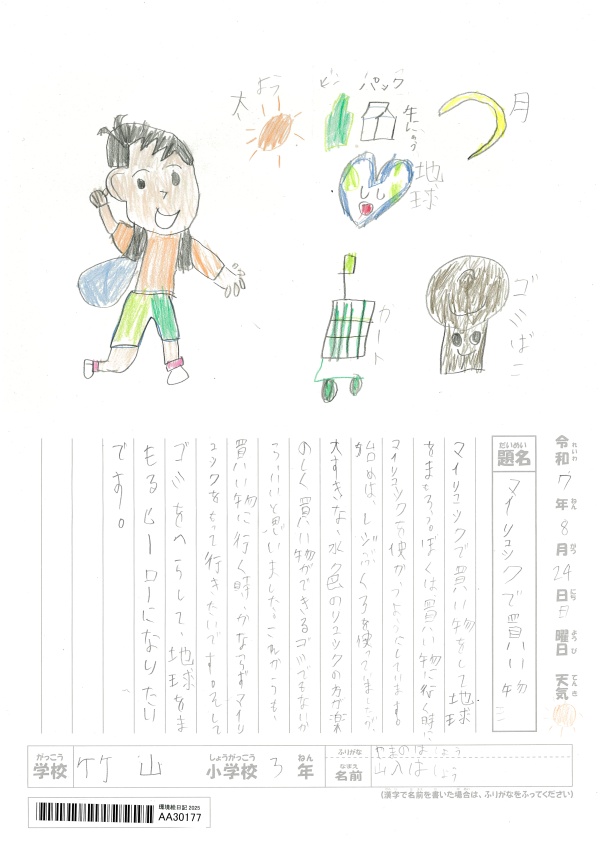 太よう
ビン
パック
牛にゅう
月
地球
カート
ゴミばこ
令和7年8月24日日曜日 天気
れいわ ねん がつ にち ようび てんき
だいめい
題名
マイリュックで買い物
マイリュックで買い物をして地球
をまもろう。ぼくは、買い物に行く時に
マイリュックを使かうようにしています。
始めは、レジぶくろを使っていましたが、
大すきな、水色のリュックの方が楽
のしく買い物ができるゴミでもないか
ら、いいと思いました。これからも、
買い物に行く時、かならずマイリ
ュックをもって行きたいです。そして
ゴミをへらして、地球をま
もるヒーローになりたい
です。
がっこう しょうがっこう ねん
学校 竹山 小学校 3年
ふりがな
なまえ
名前
(漢字で名前を書いた場合は、ふりがなをふってください)
環境絵日記 2025
AA30177